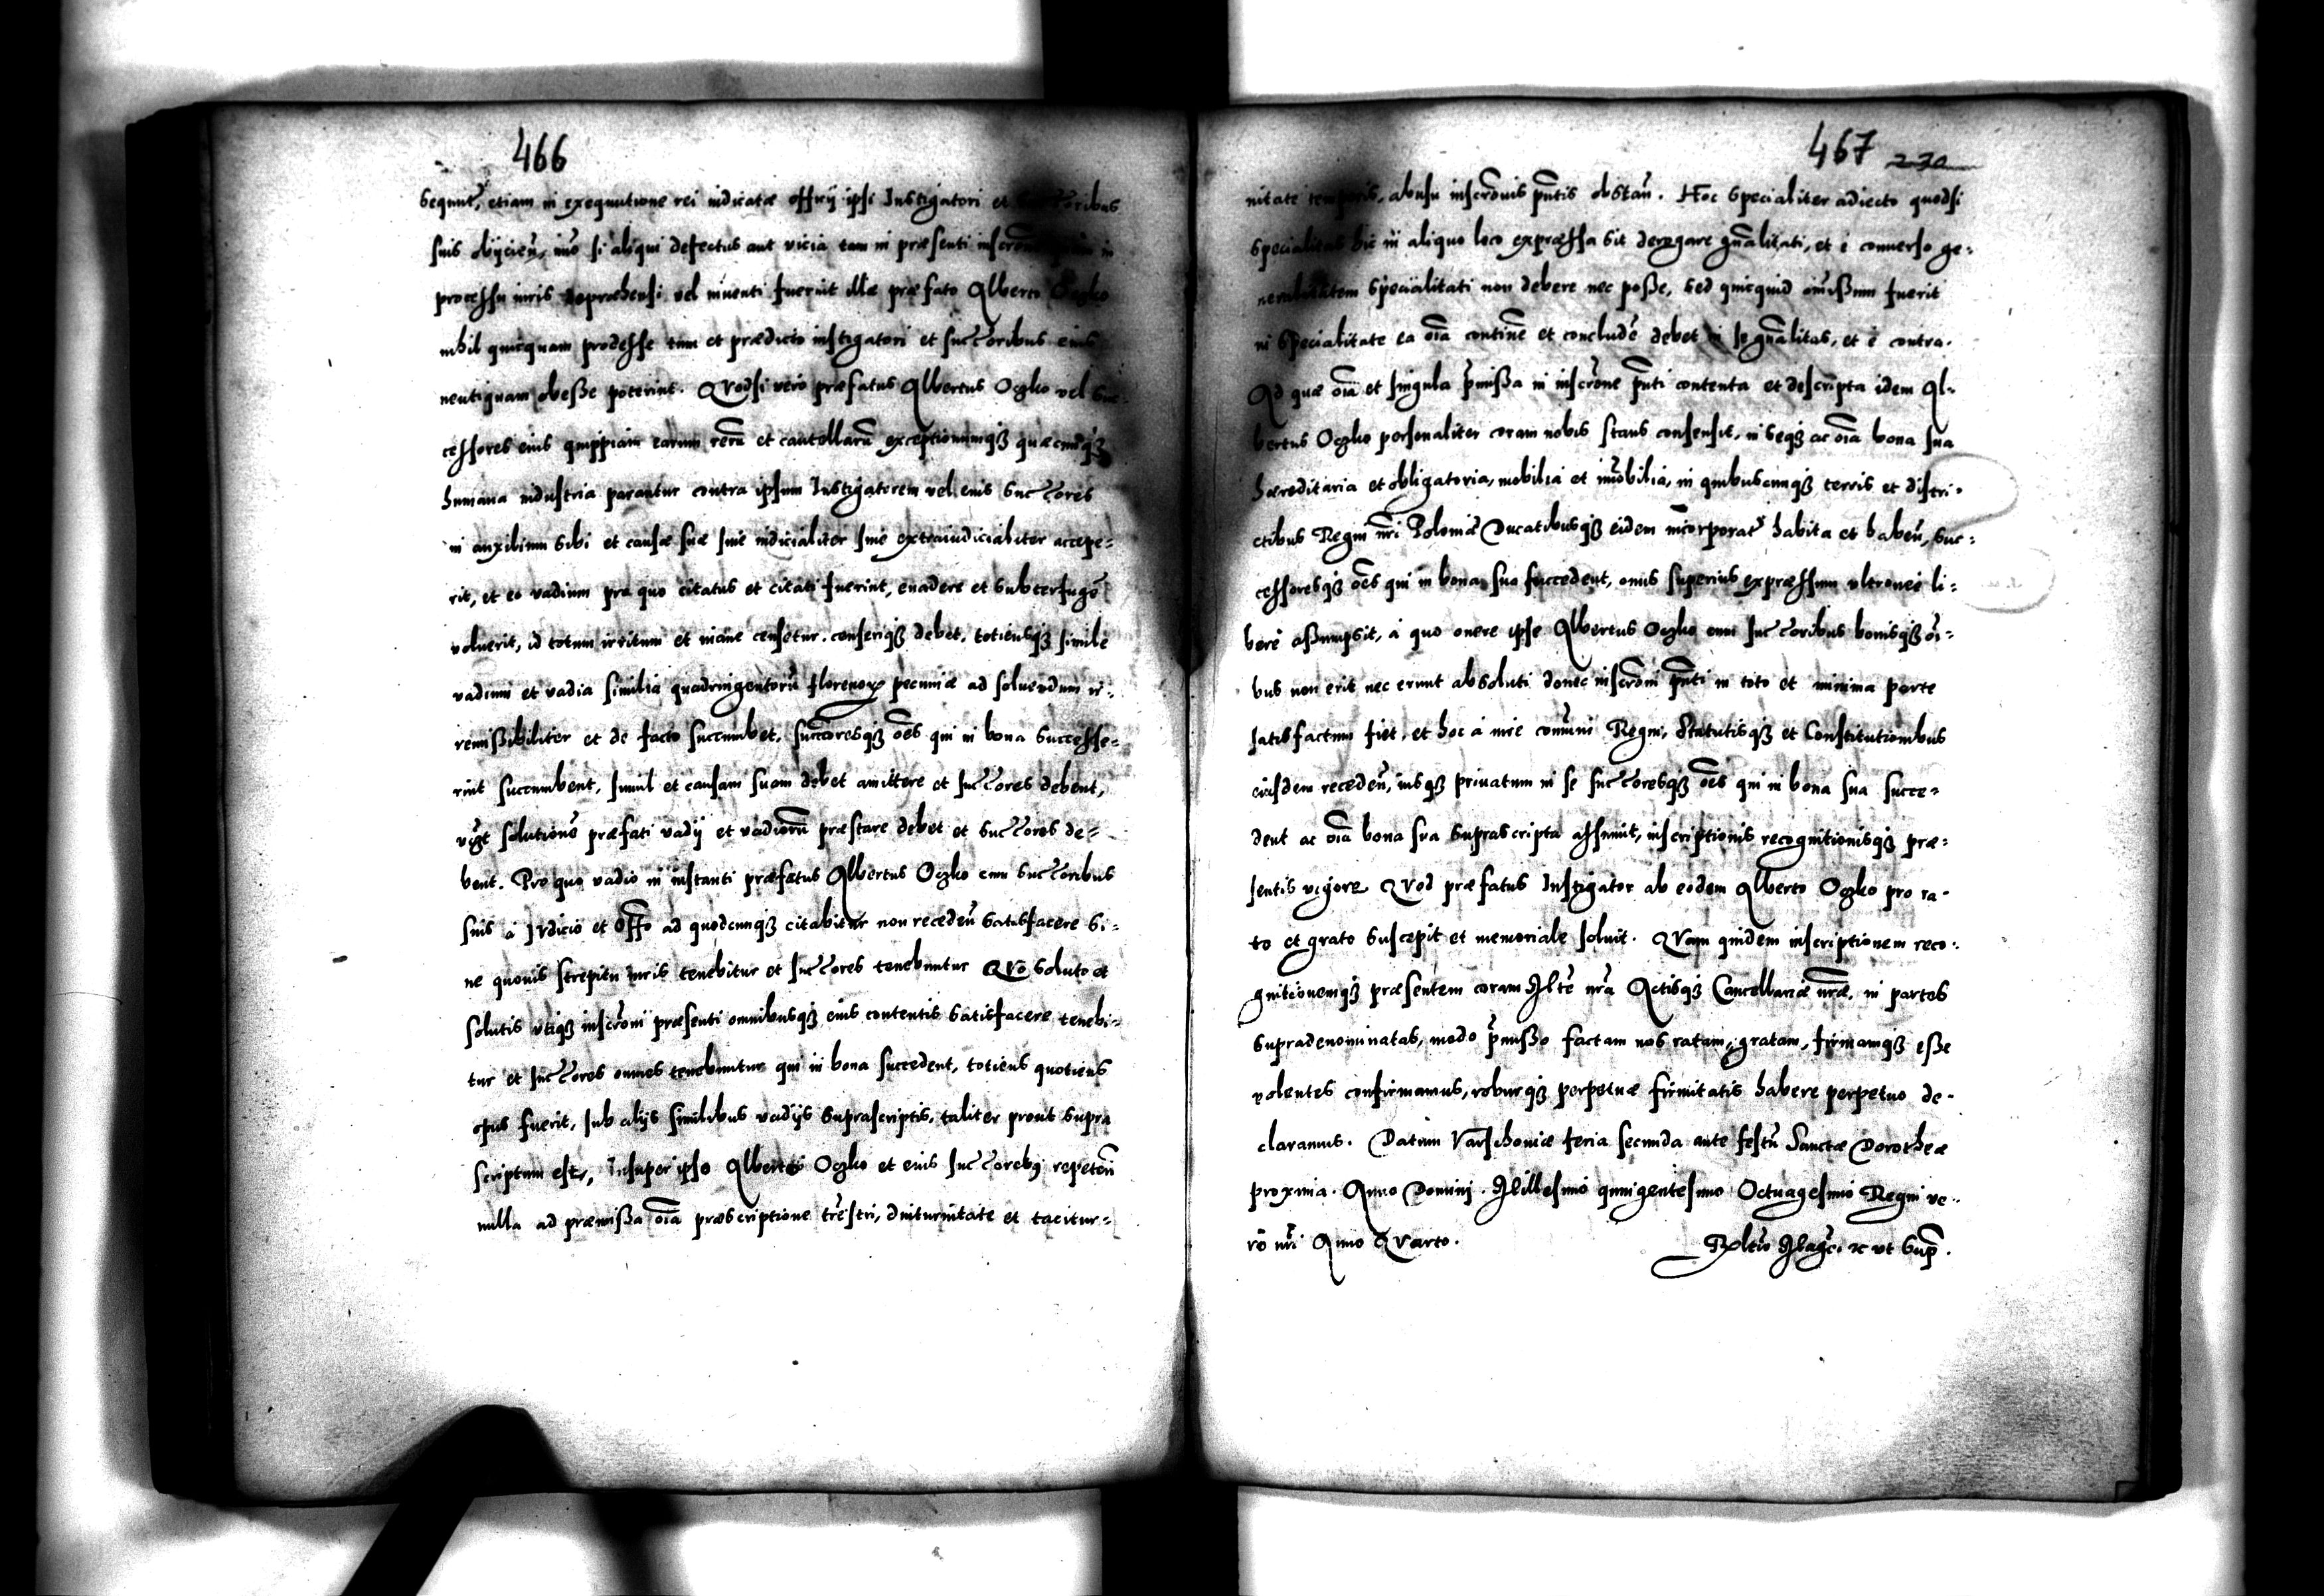 466
sequnt̃, etiam in exequutione rei iudicatæ officij ipsi Instigatori et
suis obijcień, imo si aliqui defectus aut vicia tam in præsenti inscr̃one in
processu iuris depræhensi vel inuenti fuerint illæ præfato Alberto Oczko
nihil quicquam prodesse tum et prædicto instigatori et succ̃oribus eius
neutiquam obesse poterint. Qvodsi vero præfatus Albertus Oczko vel suc-
cessores eius quippiam earum rerũ et cautellarũ exceptionumqȝ quæcunqȝ
humana industria parantur contra ipsum Instigatorem vel eius succ̃ores
in auxilium sibi et causæ suæ siue iudicialiter siue extraiudicialiter accepe=
rit, et eo vadium pro quo citatus et citati fuerint, euadere et subterfugẽ
voluerit, id totum irritum et inane censetur. conseriqȝ debet, totiensqȝ simile
vadium et vadia similia quadringentorũ florenoꝝ pecuniæ ad soluendum ir=
remissibiliter et de facto succumbet, succ̃oresqȝ oẽs qui in bona successe=
rint succumbent, simul et causam suam debet amittere et succ̃ores debent,
vigt solutionẽ præfati vadij et vadiorũ præstare debet et succ̃ores de=
bent. Pro quo vadio in instanti præfatus Albertus Oczko cum succ̃oribus
suis a Iudicio et offõ ad quodcunqȝ citabitur non recedeń satisfacere si=
ne quouis strepitu iuris tenebitur et succ̃ores tenebuntur Qvõ soluto et
solutis vtiqȝ inscr̃oni præsenti omnibusqȝ eius contentis satisfacere tenebi=
tur et succ̃ores omnes tenebuntur qui in bona succedent, totiens quotiens
opus fuerit, sub alijs similibus vadijs suprascriptis, taliter prout supra
scriptum est, Insuper ipso Alberto Oczko et eius succ̃oribꝫ repeteñ
nulla ad præmissa oĩa præscriptione tr̃estri, diuturnitate et tacitur=
467 230
nitate temporis, abusu inscr̃onis pñtis obstañ. Hoc specialiter adiecto quodsi
specialitas hic in aliquo loco expræssa sit derogare gñalitati, et è conuerso ge=
neralitatem specialitati non debere nec posse, sed quicquid omissum fuerit
in specialitate ea oĩa continẽ et concludẽ debet in se gñalitas, et è contra.
Ad quæ oĩa et singula p̃missa in inscr̃one pñti contenta et descripta idem Al=
bertus Oczko personaliter coram nobis stans consensit, in seqȝ ac oĩa bona sua
hæreditaria et obligatoria, mobilia et im̃obilia, in quibuscunqȝ terris et distri=
ctibus Regni nr̃i Poloniæ Ducatibusqȝ eidem incorporat̃ habita et habeñ, suc=
cessoresqȝ oẽs qui in bona sua succedent, onus superius expræssum vltroneè li=
berè assumpsit, à quo onere ipse Albertus Oczko cum succ̃oribus bonisqȝ oĩ=
bus non erit nec erunt absoluti donec inscr̃oni pñti in toto et minima parte
satisfactum fiet, et hoc à iure comuni Regni, Statutisqȝ et Constitutionibus
eiusdem recedeñ, iusqȝ priuatum in se succ̃oresqȝ oẽs qui in bona sua succe=
dent ac oĩa bona sua suprascripta assumit, inscriptionis recognitionisqȝ præ=
sentis vigore Qvod præfatus Instigator ab eodem Alberto Oczko pro ra=
to et grato suscepit et memoriale soluit. Qvam quidem inscriptionem reco=
gnitionemqȝ præsentem coram Mtẽ nr̃a Actisqȝ Cancellariæ nr̃æ, in partes
supradenominatas, modo p̃misso factam nos ratam, gratam, firmamqȝ esse
volentes confirmamus, roburqȝ perpetuæ firmitatis habere perpetuo de=
claramus. Datum Varschouiæ feria secunda ante festũ Sanctæ Dorotheæ
proxima. Anno Domini. Millesimo quingentesimo Octuagesimo Regni ve=
rò nr̃i Anno Qvarto.
Rltio Magci. ꝛc vt sup̃.